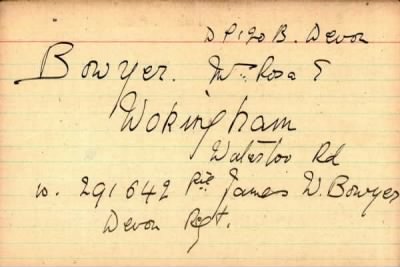 D P 120 B. Devon
Bowyer. Mrs Rosa E
Wokingham
Waterloo Rd
w. 291642 Pte James W. Bowyer
Devon Rgt.